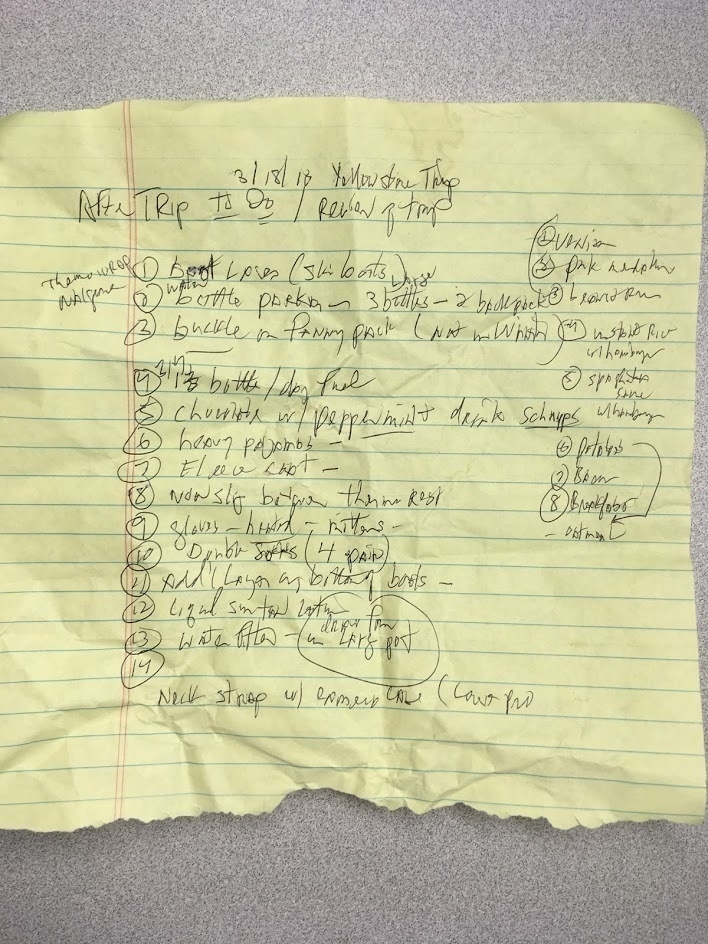 3/18/18 Yellowstone Trip
After TRip to Do / Review of trip
Thermowrap
Walgreens
① Boot Laces (ski boots)
② water bottle parka - 3 Large bottles - 2 backpack
③ buckle on Fanny pack (Not on
④ bottle/day fuel
⑤ chocolate w/ peppermint drink schnapps
⑥ heavy pajamas -
⑦ Fleece coat -
⑧ Non slip between therma Rest
⑨ gloves - - mittens -
⑩ Double socks (4 pair)
⑪ Add'l Layer on bottom of boots -
⑫ Liquid
⑬ water filter - in Large pot
draw from
⑭
Neck strap w/ camera case (Lowe pro
① Venison
② pork
③
④ instant Rice
w/hamburger
⑤ spaghetti
w/hamburger
⑥ potatoes
⑦ Bean
⑧ Breakfast
- oatmeal